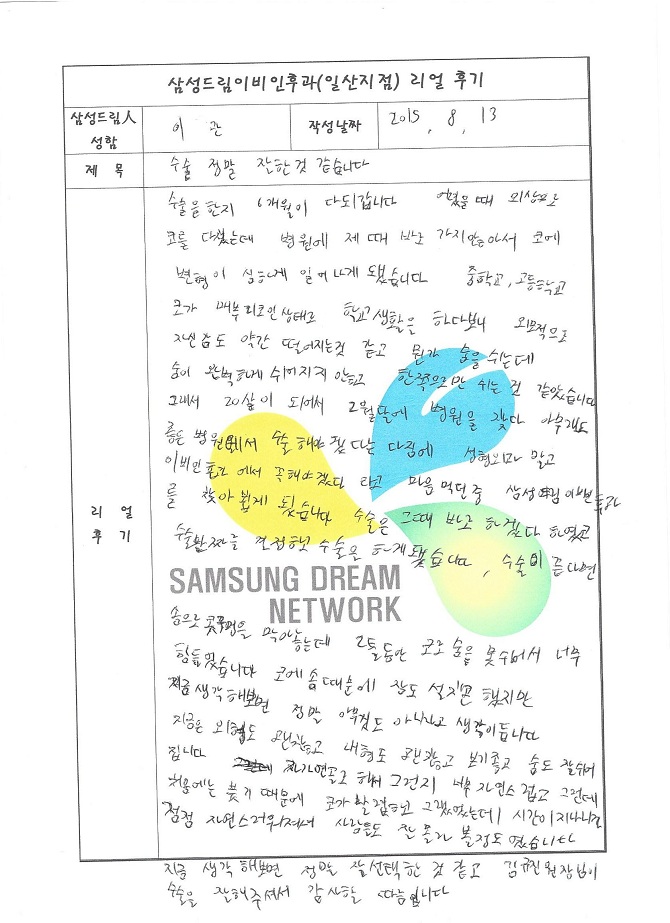 삼성드림이비인후과(일산지점) 리얼 후기
삼성드림人 성함 이 관 작성날짜 2015. 8. 13
제 목 수술 정말 잘한것 같습니다
리 얼 후 기
수술을한지 6개월이 다되갑니다 어렸을때 외상으로
코를 다쳤는데 병원에 제때 바로 가지않아서 코에
변형이 심하게 일어나게 됐습니다 중학교, 고등학교
코가 매부리코인상태로 학교생활을 하다보니 외모적으로
자신감도 약간 떨어지는것 같고 뭔가 숨을쉬는데
숨이 완벽하게 쉬어지지 안하고 한쪽으로만 쉬는 것 같았습니다
그래서 20살이 되어서 2월달에 병원을 갔다 아무래도
좋은 병원에서 수술해야겠다는 다짐에 성형외과 말고
이비인후과에서 꼭해야겠다 라고 마음먹던중 삼성드림이비인후과
를 찾아 뵙게 됬습니다 수술은 그때 바로 하겠다 하였고
수술날짜를 결정하고 수술을 하게됐습니다, 수술이 끝나면
SAMSUNG DREAM
NETWORK
솜으로 콧구멍을 막아놓는데 2틀동안 코로 숨을 못쉬어서 너무
힘들었습니다 코에 솜때문에 잠도 설치곤 했지만
지금생각해보면 정말 아무것도 아니라고 생각이듭니다
지금은 외형도 괜찮고 내형도 괜찮고 보기좋고 숨도 잘쉬어
집니다 자가연골로 해서 그런지 너무 자연스럽고 그런데
처음에는 붓기 때문에 코가 그랬었는데 시간이지나니깐
점점 자연스러워져서 사람들도 잘 몰라 볼정도 였습니다
지금 생각해보면 정말 잘선택한 것 같고 김규진원장님이
수술을 잘해주셔서 감사할 따름입니다